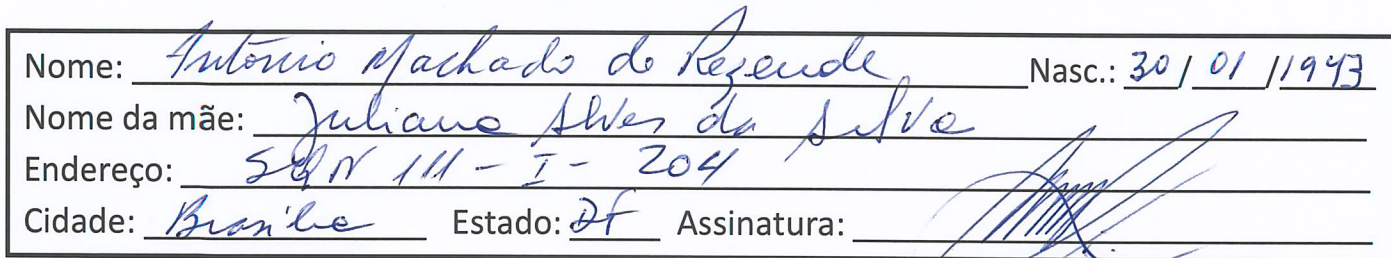 Nome: Antônio Machado de Rezende Nasc.: 30/ 01 /1943
Nome da mãe: Juliana Alves da Silva
Endereço: SQN 111 - I - 204
Cidade: Brasília Estado: DF Assinatura: